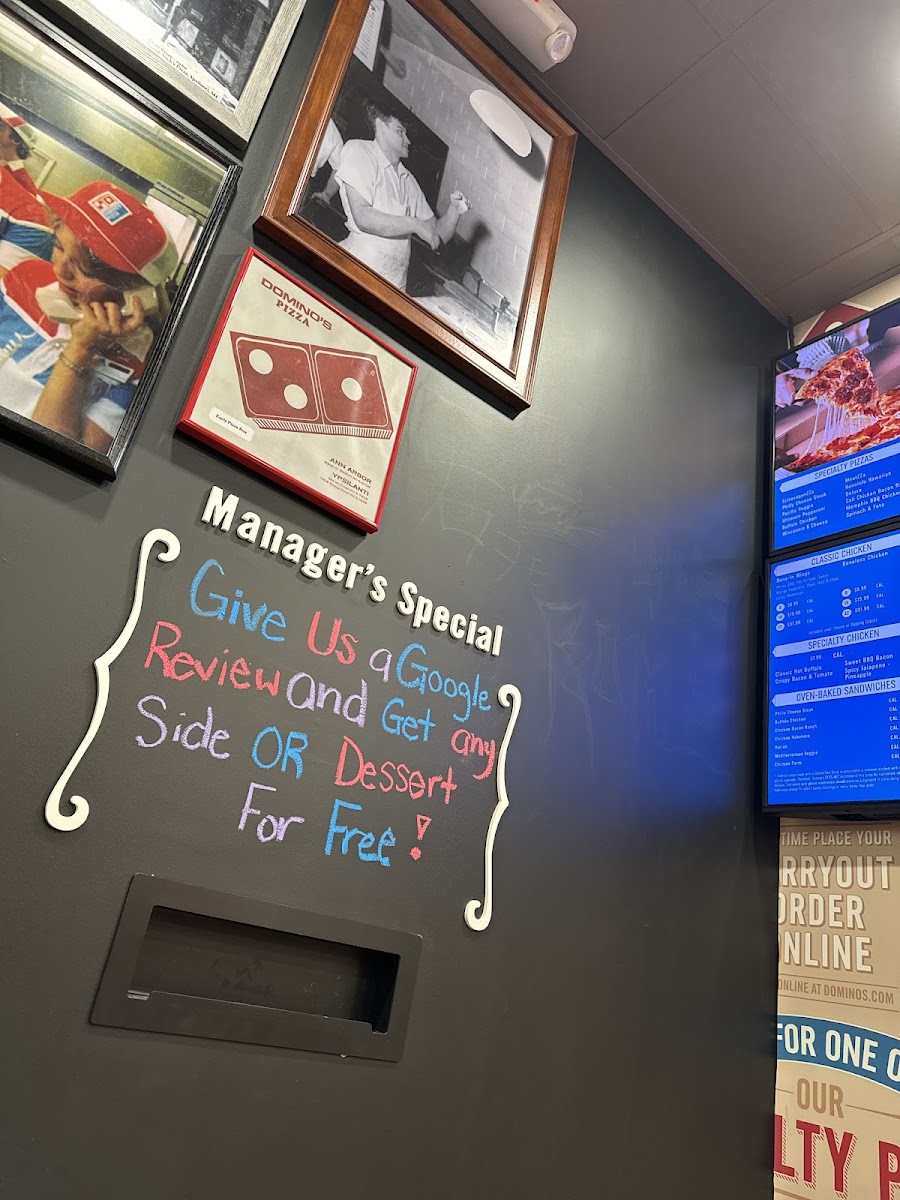 DOMINO'S
PIZZA
Early Pizza Box
ANN ARBOR
YPSILANTI
Manager's Special
Give Us a Google
Review and Get any
Side OR Dessert
For Free!
SPECIALTY PIZZAS
ExtravaganZZa
Philly Cheese Steak
Pacific Veggie
Ultimate Pepperoni
Buffalo Chicken
Wisconsin 6 Cheese
MeatZZa
Honolulu Hawaiian
Deluxe
Cali Chicken Bacon Ra
Memphis BBQ Chicken
Spinach & Feta
CLASSIC CHICKEN
Bone-In Wings
Boneless Chicken
SPECIALTY CHICKEN
CAL.
Classic Hot Buffalo
Crispy Bacon & Tomato
Sweet BBQ Bacon
Spicy Jalapeno -
Pineapple
OVEN-BAKED SANDWICHES
Philly Cheese Steak
Buffalo Chicken
Chicken Bacon Ranch
Chicken Habanero
Italian
Mediterranean Veggie
Chicken Parm
TIME PLACE YOUR
RRYOUT
ORDER
ONLINE
ONLINE AT DOMINOS.COM
FOR ONE O
OUR
LTY P